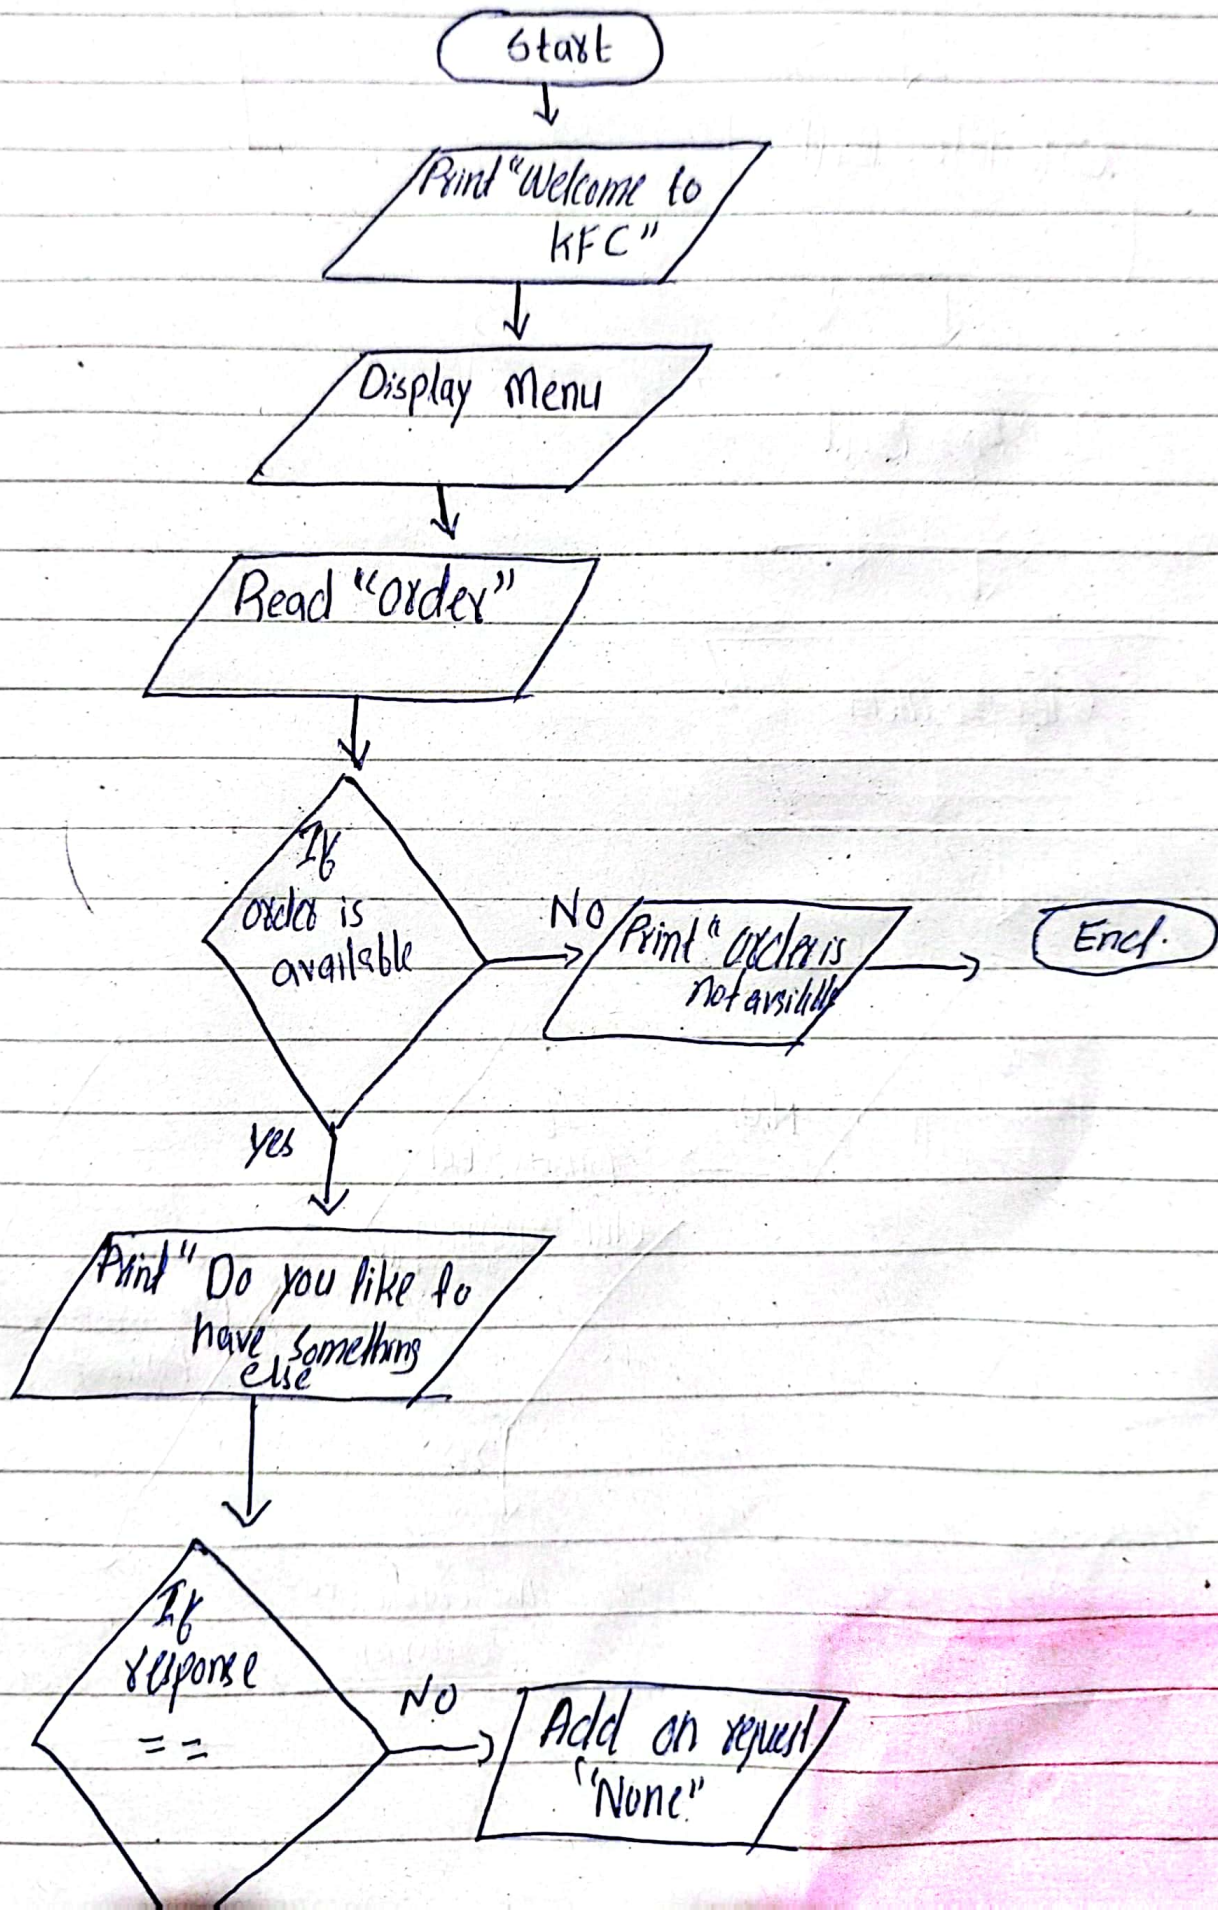 Start
Print "Welcome to
KFC"
Display Menu
Read "Order"
If
order is
available
NO
Print "order is
not avsilable
End.
Yes
Print "Do you like to
have something
else
If
response
==
NO
Add on request
"None"